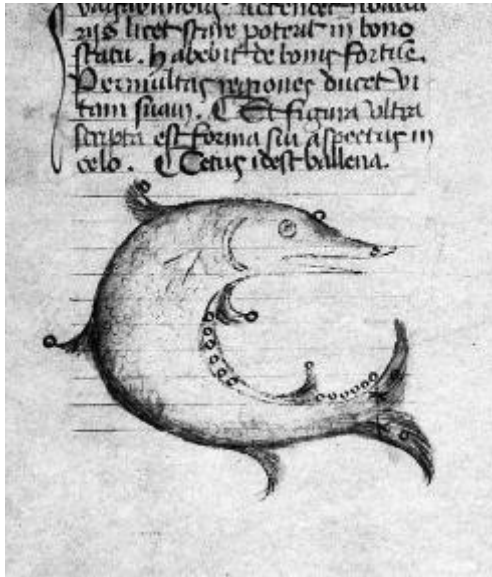 rijs licet stare poterit in bono
statu. habebit de bonis fortue.
Per multas regiones ducet vi
tam suam. Et figura ultra
scripta est forma sui aspectus in
celo. Cetus idest ballena.